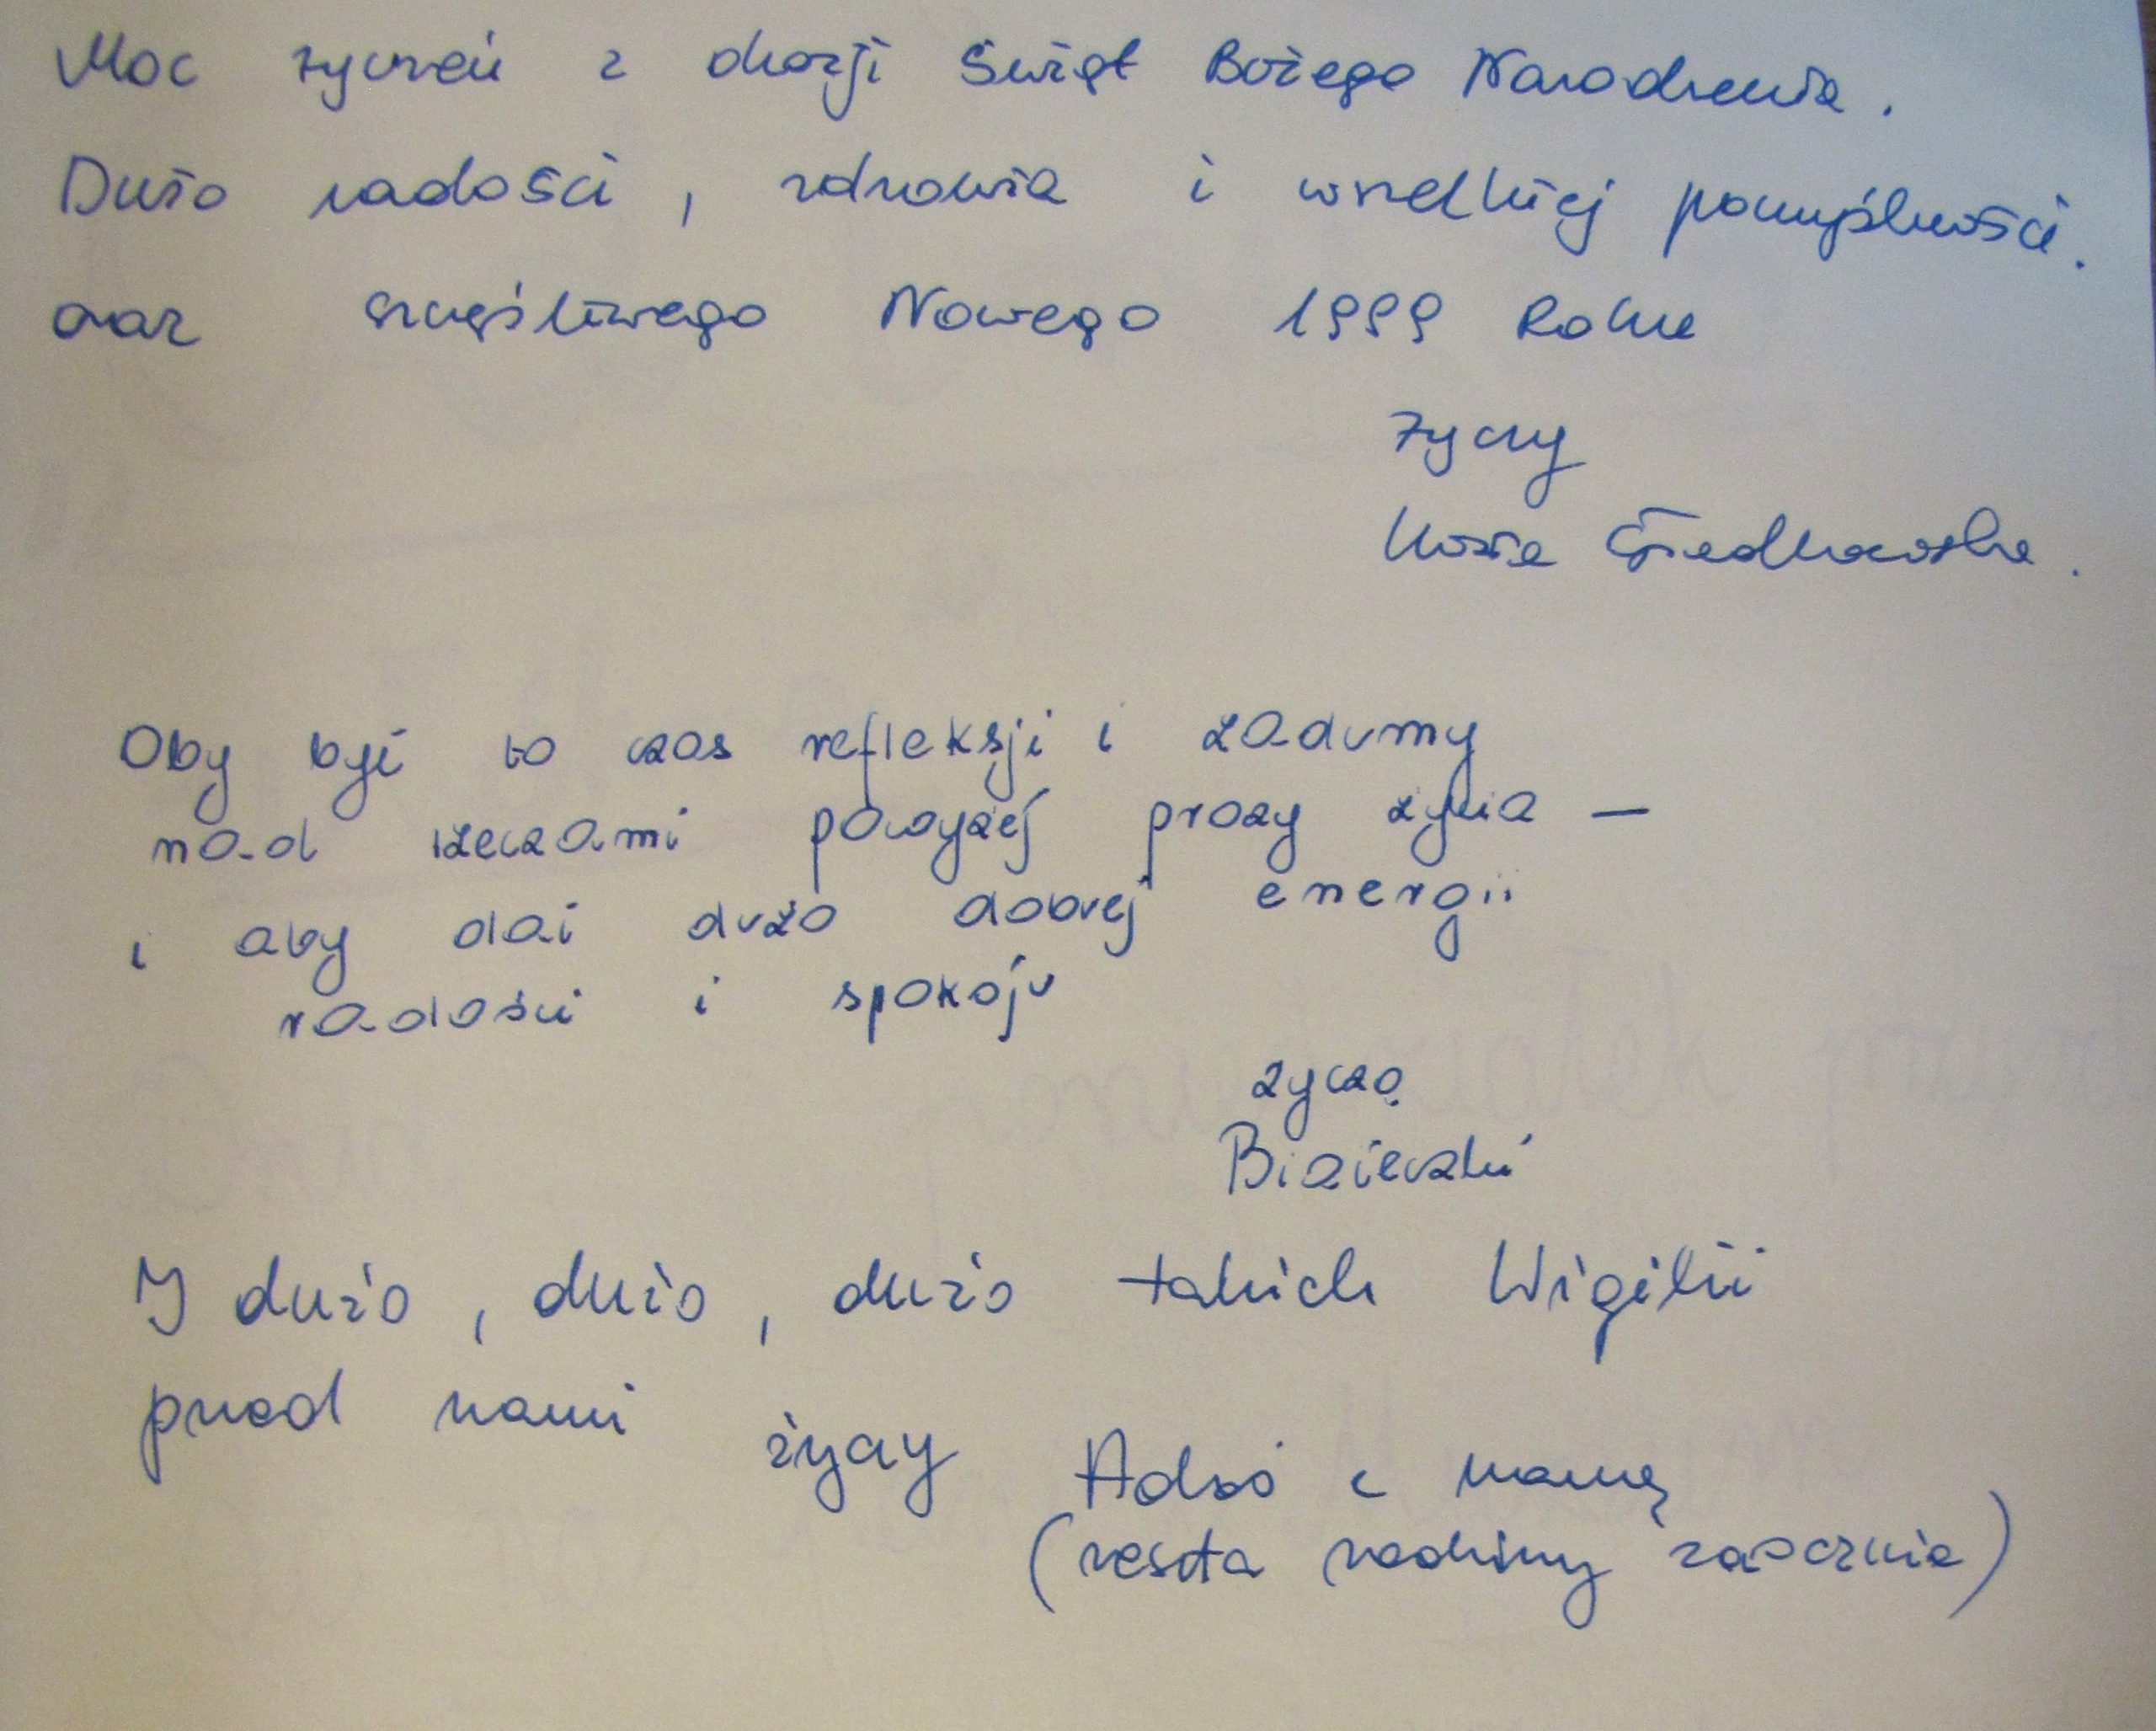 Moc życzeń z okazji Świąt Bożego Narodzenia.
Dużo radości, zdrowia i wszelkiej pomyślności.
oraz szczęśliwego Nowego 1999 Roku
życzy
Oby być to czas refleksji i zadumy
nad rzeczami powyżej prozy życia –
i aby dać dużo dobrej energii
radości i spokoju
życzą
I dużo, dużo, dużo takich Wigilii
przed nami
życzy Adaś z mamą
(reszta rodziny zaocznie)